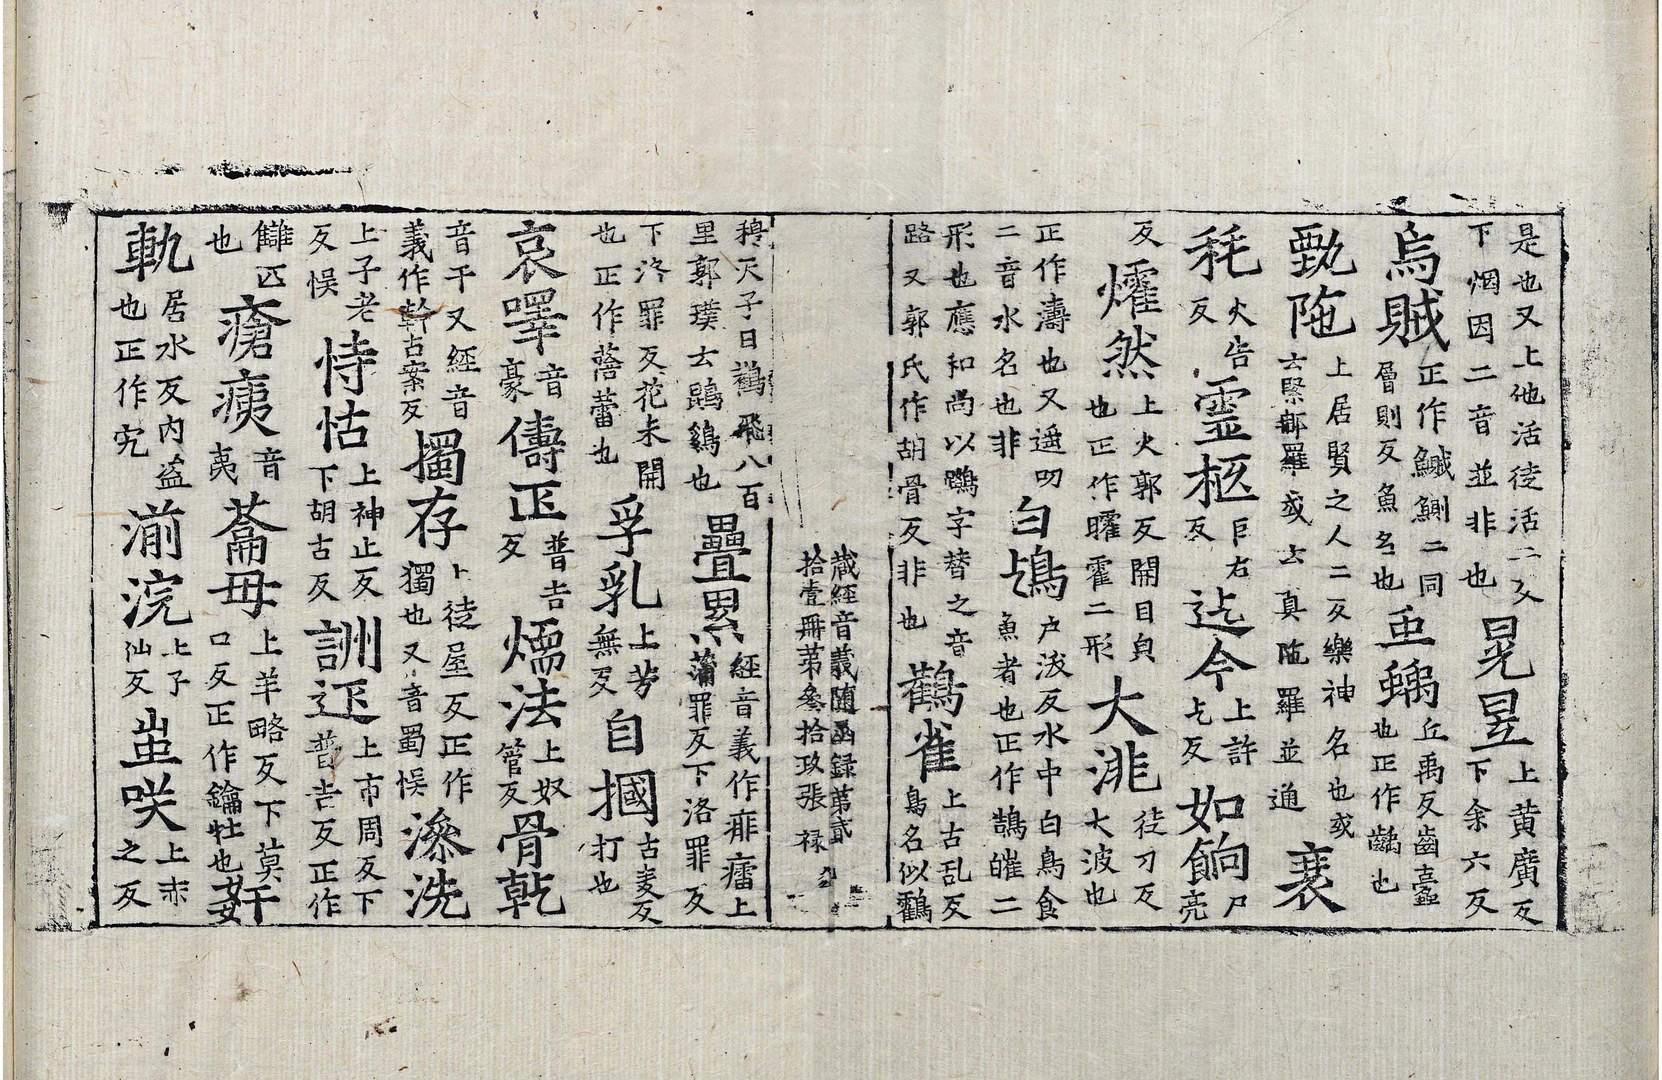 是也又上他活徒活二反晃昱上黄廣反
下烟因二音並非也下余六反
烏賊正作鰄鰂二同
層則反魚名也齲丘禹反齒蠹
也正作齲也
上居賢之人二反樂神名也或
云緊那羅或云真陁羅並通
耗火告
反靈柩巨右
反迄今上許
乞反如餉尸
亮
反㸌然上火郭反開目皃
也正作矐霍二形大洮徒刀反
大波也
正作濤也又遥叨
二音水名也非白鴇户泼反水中白鳥食
魚者也正作鵠皠二
形也應和尚以鸚字替之音
路又郭氏作胡骨反非也鸛雀上古乱反
鳥名似鸛
藏經音義随函録第貳
拾壹冊第叄拾玖張 禄
穆天子日鸛飛八百
里郭璞云鵾鷄也疊累經音義作痱癗上
蒲罪反下洛罪反
下洛罪反花未開
也正作蓓蕾也孚乳上芳
無反自摑古麦反
打也
哀嘷音
豪儔匹普吉
反㷟法上奴
管反骨乾
音干又經音
義作幹古案反擉存上徒屋反正作
獨也又音蜀悮㵕洗
上子老
反悮恃怙上神止反
下胡古反詶𨒬上市周反下
普吉反正作
讎匹
也瘡痍音
夷蘥母上羊略反下莫
口反正作鑰牡也姧
軌居水反内盗
也正作宄湔浣上子
仙反蚩咲上赤
之反